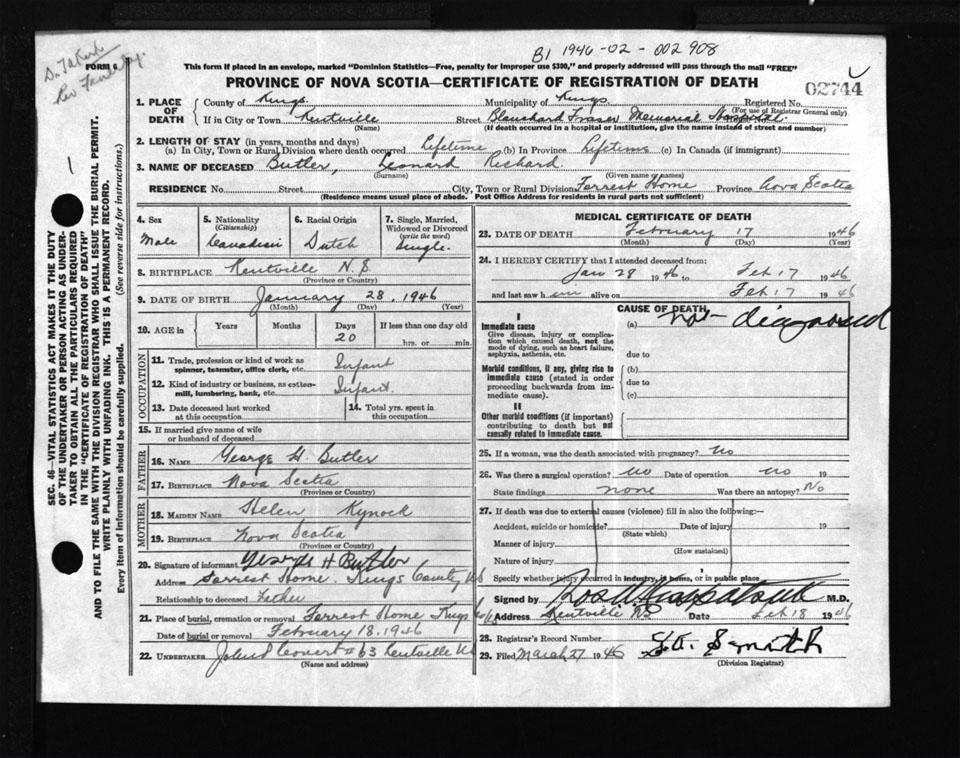 B1 1946-02-002908
FORM 6
If placed in an envelope, marked "Dominion Statistics—Free, penalty for improper use $300," and properly addressed will pass through the mail "FREE"
PROVINCE OF NOVA SCOTIA—CERTIFICATE OF REGISTRATION OF DEATH
02744
1. PLACE OF DEATH
County of Kings Municipality of Kings Registered No.
(For use of Registrar General only)
If in City or Town Kentville Street Blanchard Fraser Memorial Hospital
(Name) (If death occurred in a hospital or institution, give the name instead of street and number)
2. LENGTH OF STAY (in years, months and days)
(a) In City, Town or Rural Division where death occurred Lifetime (b) In Province Lifetime (c) In Canada (if immigrant)
3. NAME OF DECEASED Butler, Leonard Richard
(Surname) (Given name or names)
RESIDENCE No. Street City, Town or Rural Division Forrest Home Province Nova Scotia
(Residence means usual place of abode. Post Office Address for residents in rural parts not sufficient)
4. Sex
Male
5. Nationality
(Citizenship)
Canadian
6. Racial Origin
Dutch
7. Single, Married, Widowed or Divorced
(write the word)
Single.
8. BIRTHPLACE Kentville N.S.
(Province or Country)
9. DATE OF BIRTH January 28, 1946
(Month) (Day) (Year)
10. AGE in
Years Months Days If less than one day old
20 hrs. or min.
OCCUPATION
11. Trade, profession or kind of work as spinner, teamster, office clerk, etc. Infant
12. Kind of industry or business, as cotton-mill, lumbering, bank, etc. Infant.
13. Date deceased last worked at this occupation
14. Total yrs. spent in this occupation
15. If married give name of wife or husband of deceased
FATHER
16. NAME George H. Butler
17. BIRTHPLACE Nova Scotia
(Province or Country)
MOTHER
18. MAIDEN NAME Helen Kynock
19. BIRTHPLACE Nova Scotia
(Province or Country)
20. Signature of informant George H Butler
Address Forrest Home, Kings County, NS
Relationship to deceased Father
21. Place of burial, cremation or removal Forrest Home Kings
Date of burial or removal February 18, 1946
22. UNDERTAKER Kentville NS
(Name and address)
MEDICAL CERTIFICATE OF DEATH
23. DATE OF DEATH February 17 1946
(Month) (Day) (Year)
24. I HEREBY CERTIFY that I attended deceased from:
Jan 28 1946 to Feb 17 1946
and last saw him alive on Feb 17 1946
I
Immediate cause
Give disease, injury or complication which caused death, not the mode of dying, such as heart failure, asphyxia, asthenia, etc.
Morbid conditions, if any, giving rise to immediate cause (stated in order proceeding backwards from immediate cause).
II
Other morbid conditions (if important) contributing to death but not causally related to immediate cause.
CAUSE OF DEATH
(a) Not diagnosed
due to
(b)
due to
(c)
25. If a woman, was the death associated with pregnancy? No
26. Was there a surgical operation? no Date of operation no 19
State findings none Was there an autopsy? No
27. If death was due to external causes (violence) fill in also the following:—
Accident, suicide or homicide? Date of injury 19
(State which)
Manner of injury
(How sustained)
Nature of injury
Specify whether injury occurred in industry, in home, or in public place
Signed by M.D.
Address Kentville NS Date Feb 18 1946
28. Registrar's Record Number
29. Filed March 27 1946
(Division Registrar)
SEC. 46—VITAL STATISTICS ACT MAKES IT THE DUTY
OF THE UNDERTAKER OR PERSON ACTING AS UNDER-
TAKER TO OBTAIN ALL THE PARTICULARS REQUIRED
IN THE "CERTIFICATE OF REGISTRATION OF DEATH"
AND TO FILE THE SAME WITH THE DIVISION REGISTRAR WHO SHALL ISSUE THE BURIAL PERMIT.
WRITE PLAINLY WITH UNFADING INK. THIS IS A PERMANENT RECORD.
Every item of information should be carefully supplied. (See reverse side for instructions.)